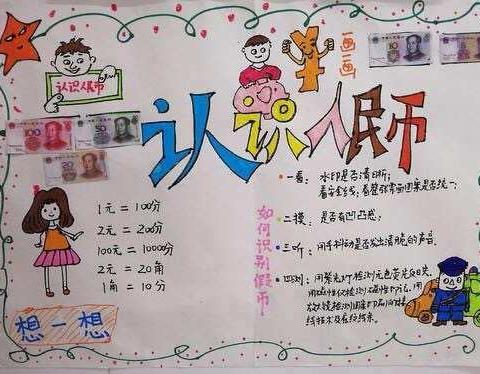 认识人民币
认识人民币
画一画
100
50
20
10
1元 = 100分
2元 = 200分
100元 = 10000分
2元 = 20角
1角 = 10分
想一想
如何识别假币
一看：水印是否清晰；
看安全线；看整张票面图案是否统一；
二摸：是否有凹凸感；
三听：用手抖动是否发出清脆的声音
四测：用紫光灯检测无色荧光反应，
用磁性仪检测磁性印记，用
放大镜检测